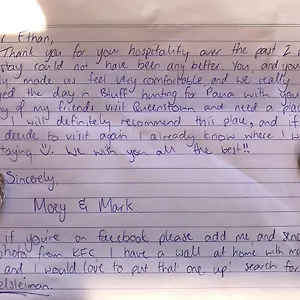 Ethan,
Thank you for your hospitality over the past 2
stay could not have been any better. You, and you
made us feel very comfortable and we really
the day in Bluff hunting for Paua with you
of my friends visit Queenstown and need a plac
I will definitely recommend this place, and if
decide to visit again I already know where I w
staying ". We wish you all the best!!
Sincerely,
Moey & Mark
if you're on facebook please add me and send
photo from KFC. I have a wall at home with ma
and I would love to put that one up! search for
elsleiman.